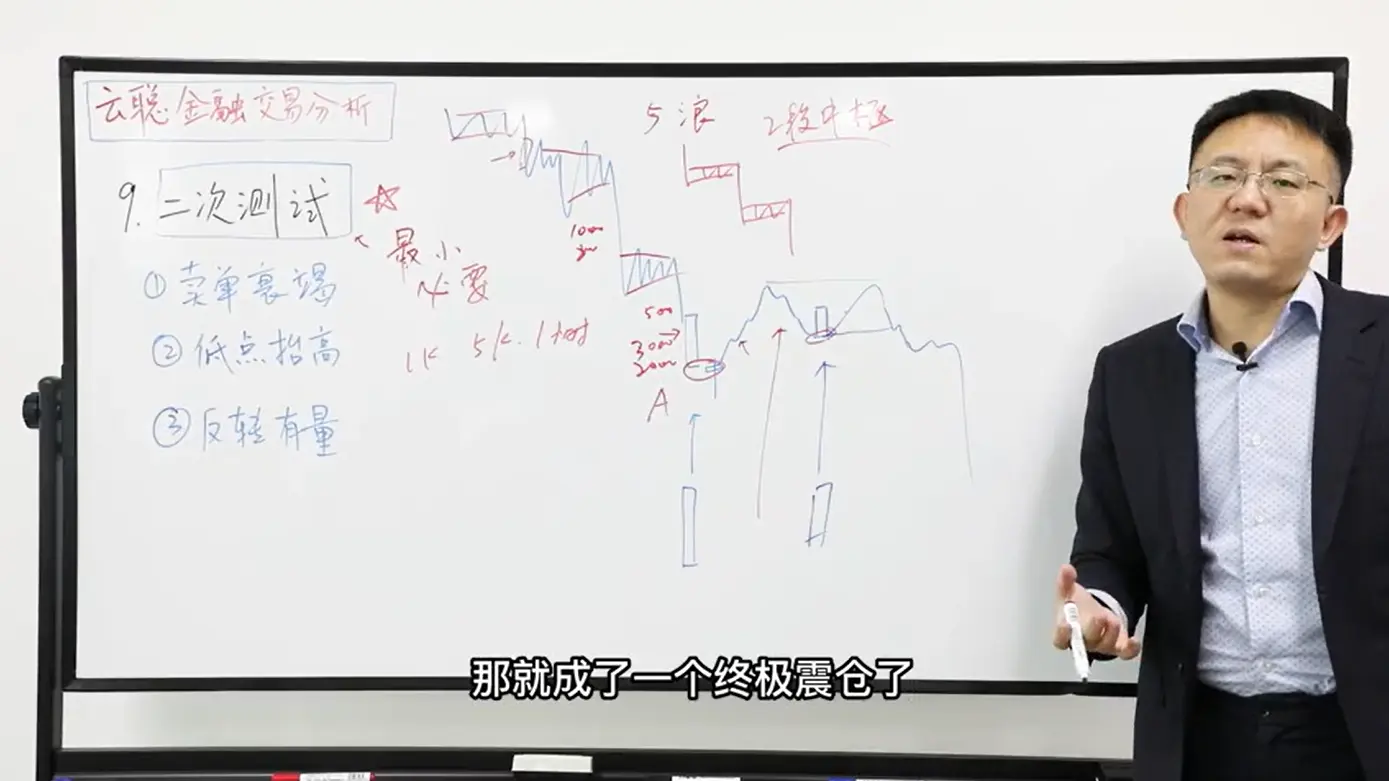 云聪金融交易分析
9. 二次测试
最小
必要
① 卖单衰竭
② 低点抬高
③ 反转有量
1K 5K 1小时
5浪 2段中枢
1000
500
3000
2000
A
那就成了一个终极震仓了